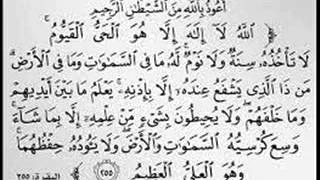 أَعُوذُ بِاللَّهِ مِنَ الشَّيْطَانِ الرَّجِيمِ
اللَّهُ لَا إِلَٰهَ إِلَّا هُوَ الْحَيُّ الْقَيُّومُ ۚ
لَا تَأْخُذُهُ سِنَةٌ وَلَا نَوْمٌ ۚ لَهُ مَا فِي السَّمَاوَاتِ وَمَا فِي الْأَرْضِ ۗ
مَنْ ذَا الَّذِي يَشْفَعُ عِنْدَهُ إِلَّا بِإِذْنِهِ ۚ يَعْلَمُ مَا بَيْنَ أَيْدِيهِمْ
وَمَا خَلْفَهُمْ ۖ وَلَا يُحِيطُونَ بِشَيْءٍ مِنْ عِلْمِهِ إِلَّا بِمَا شَاءَ ۚ
وَسِعَ كُرْسِيُّهُ السَّمَاوَاتِ وَالْأَرْضَ ۖ وَلَا يَئُودُهُ حِفْظُهُمَا ۚ
وَهُوَ الْعَلِيُّ الْعَظِيمُ ﴿٢٥٥﴾ البقرة: ٢٥٥